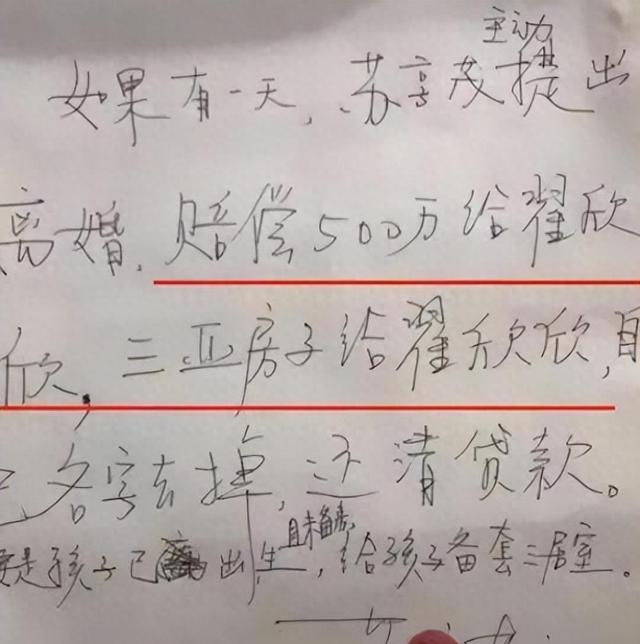 主动
如果有一天,苏享茂提出
离婚,赔偿500万给翟欣
欣,三亚房子给翟欣欣,自
己名字去掉,还清贷款。
且未备房
要是孩子已出生,给孩子备套三居室。